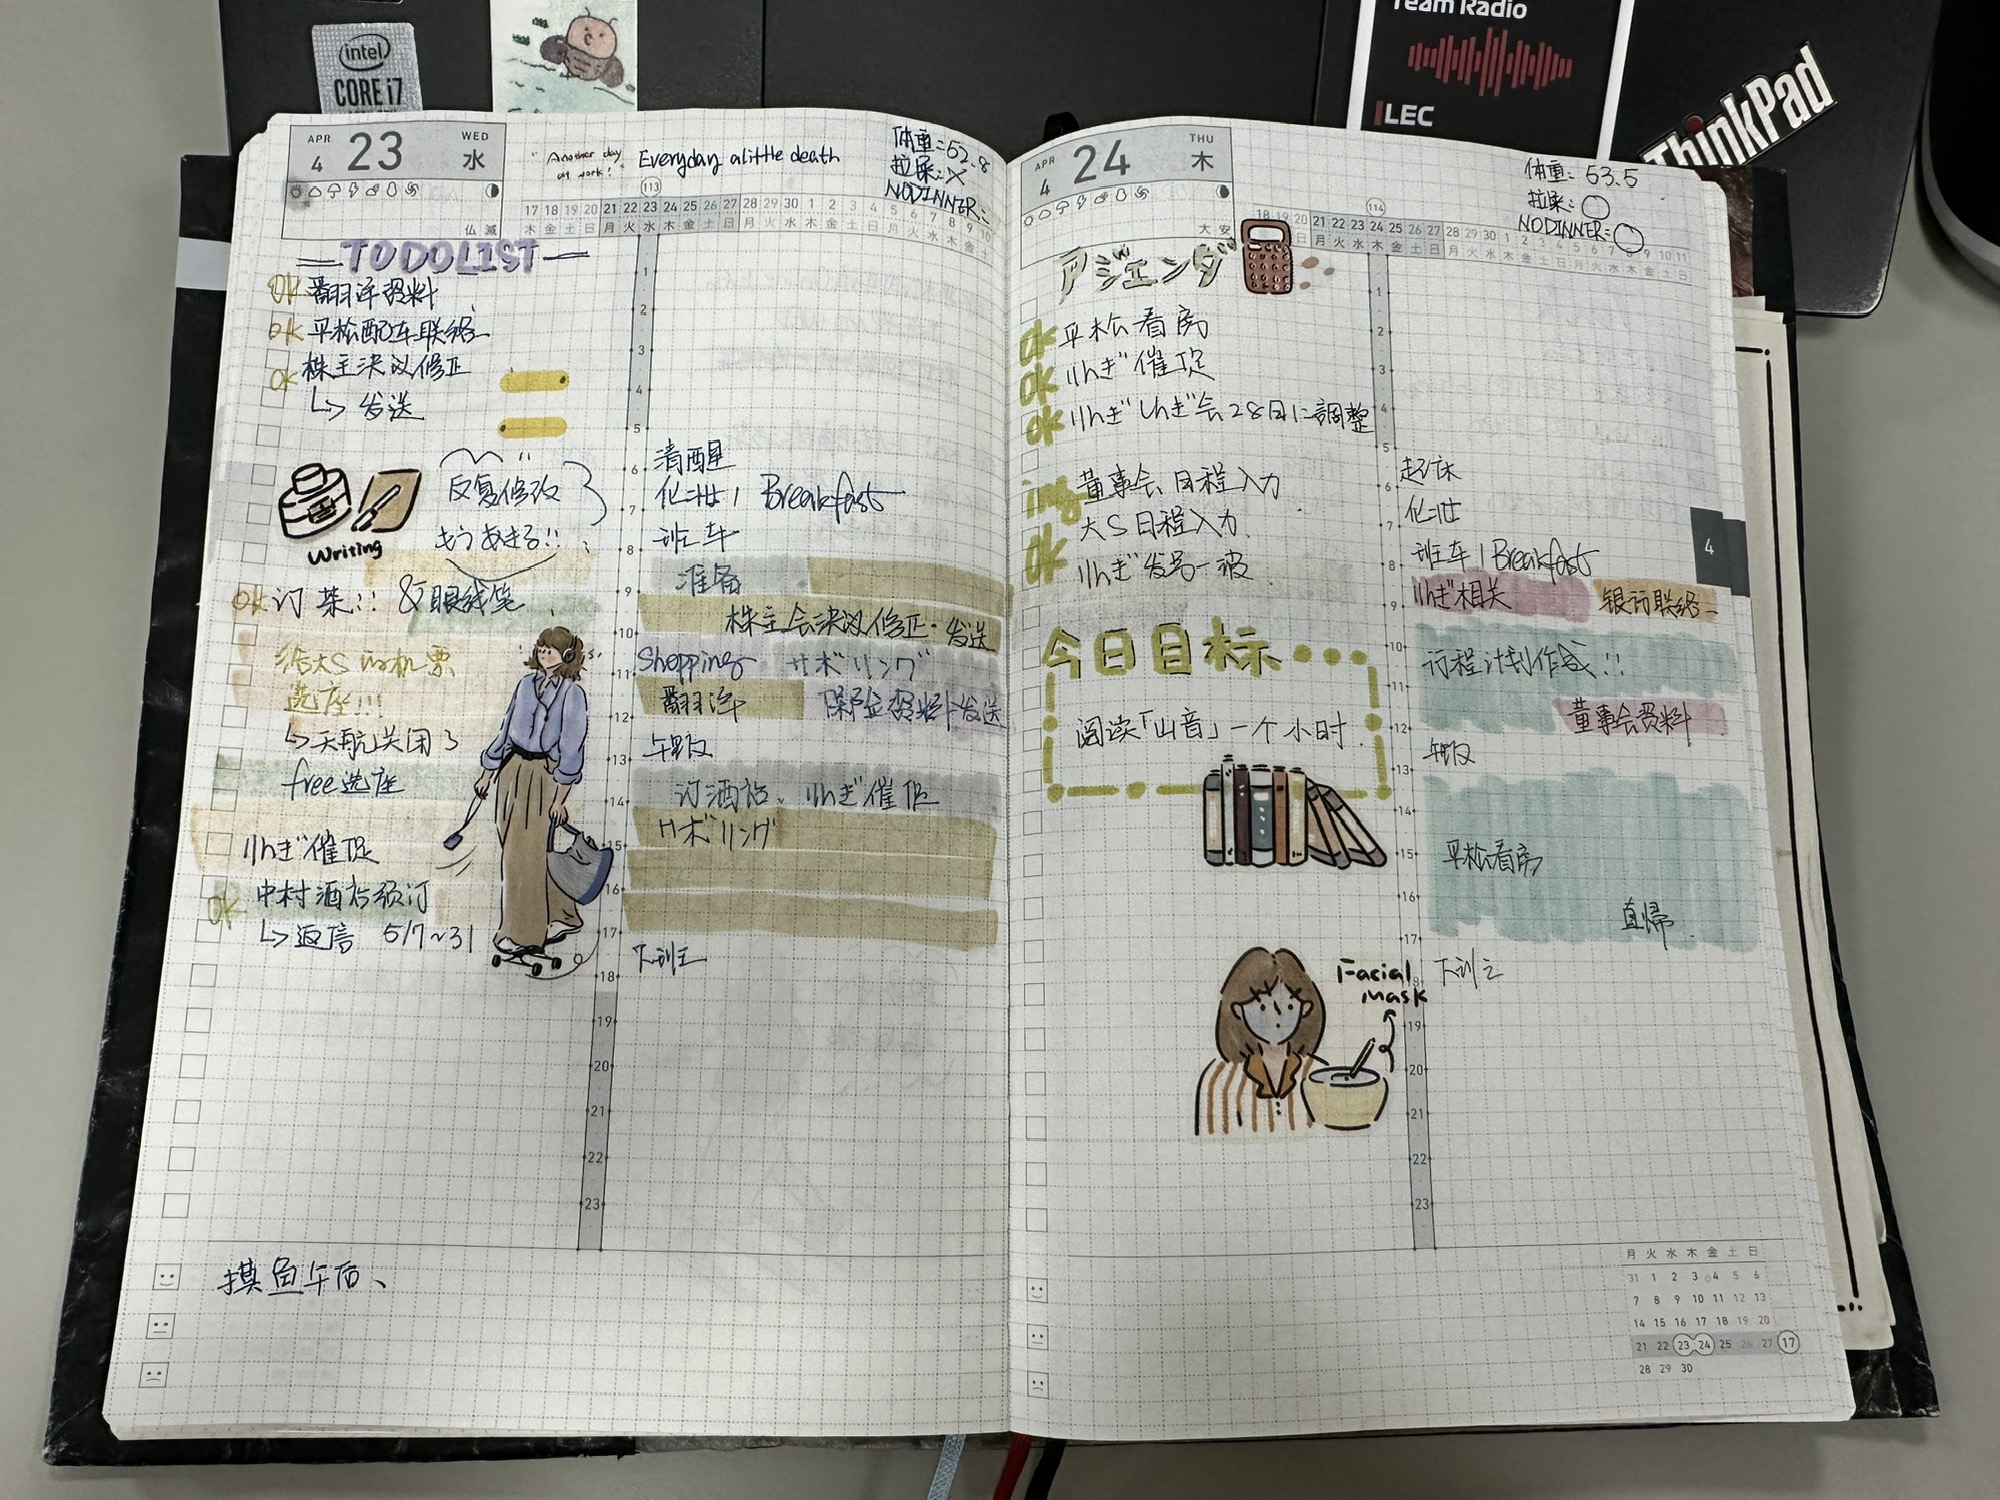 intel
CORE i7
Team Radio
LEC
ThinkPad
APR
4
23
WED
水
"Another day at work!"
Everyday a little death
体重:52.8
拉屎:×
NODINNER:
113
17 18 19 20 21 22 23 24 25 26 27 28 29 30 1 2 3 4 5 6 7 8 9 10
木 金 土 日 月 火 水 木 金 土 日 月 火 水 木 金 土 日 月 火 水 木 金 土
仏滅
TODOLIST
OK 翻译资料
OK 平松配车联络
OK 株主決议修正
↳ 发送
Writing
反复修改
もうあきる!!
OK 订菜!! & 眼线笔
给大S的机票
选座!!!
↳ 天航关闭了
free选座
りんぎ催促
OK 中村酒店预订
↳ 返信 5/7~31
1
2
3
4
5
6 清醒
7 化妆 / Breakfast
8 班车
9 准备
10 株主会決议修正·发送
11 Shopping サボリング
12 翻译 保险资料发送
13 午饭
14 订酒店、りんぎ催促
15 サボリング
16
17
18 下班
19
20
21
22
23
摸鱼午后、
APR
4
24
THU
木
体重:53.5
拉屎:○
NODINNER:○
114
18 19 20 21 22 23 24 25 26 27 28 29 30 1 2 3 4 5 6 7 8 9 10 11
大安
アジェンダ
OK 平松看房
OK りんぎ催促
OK りんぎしんぎ会28日に調整
ing 董事会日程入力
OK 大S日程入力
OK りんぎ发号一波
今日目标...
阅读「山音」一个小时.
Facial mask
1
2
3
4
5
6 起床
7 化妆
8 班车 / Breakfast
9 りんぎ相关 银行联络
10 行程计划作成!!
11
12 董事会资料
13 午饭
14
15 平松看房
16
17 直帰.
18 下班
19
20
21
22
23
4
月 火 水 木 金 土 日
31 1 2 3 4 5 6
7 8 9 10 11 12 13
14 15 16 17 18 19 20
21 22 23 24 25 26 27 17
28 29 30